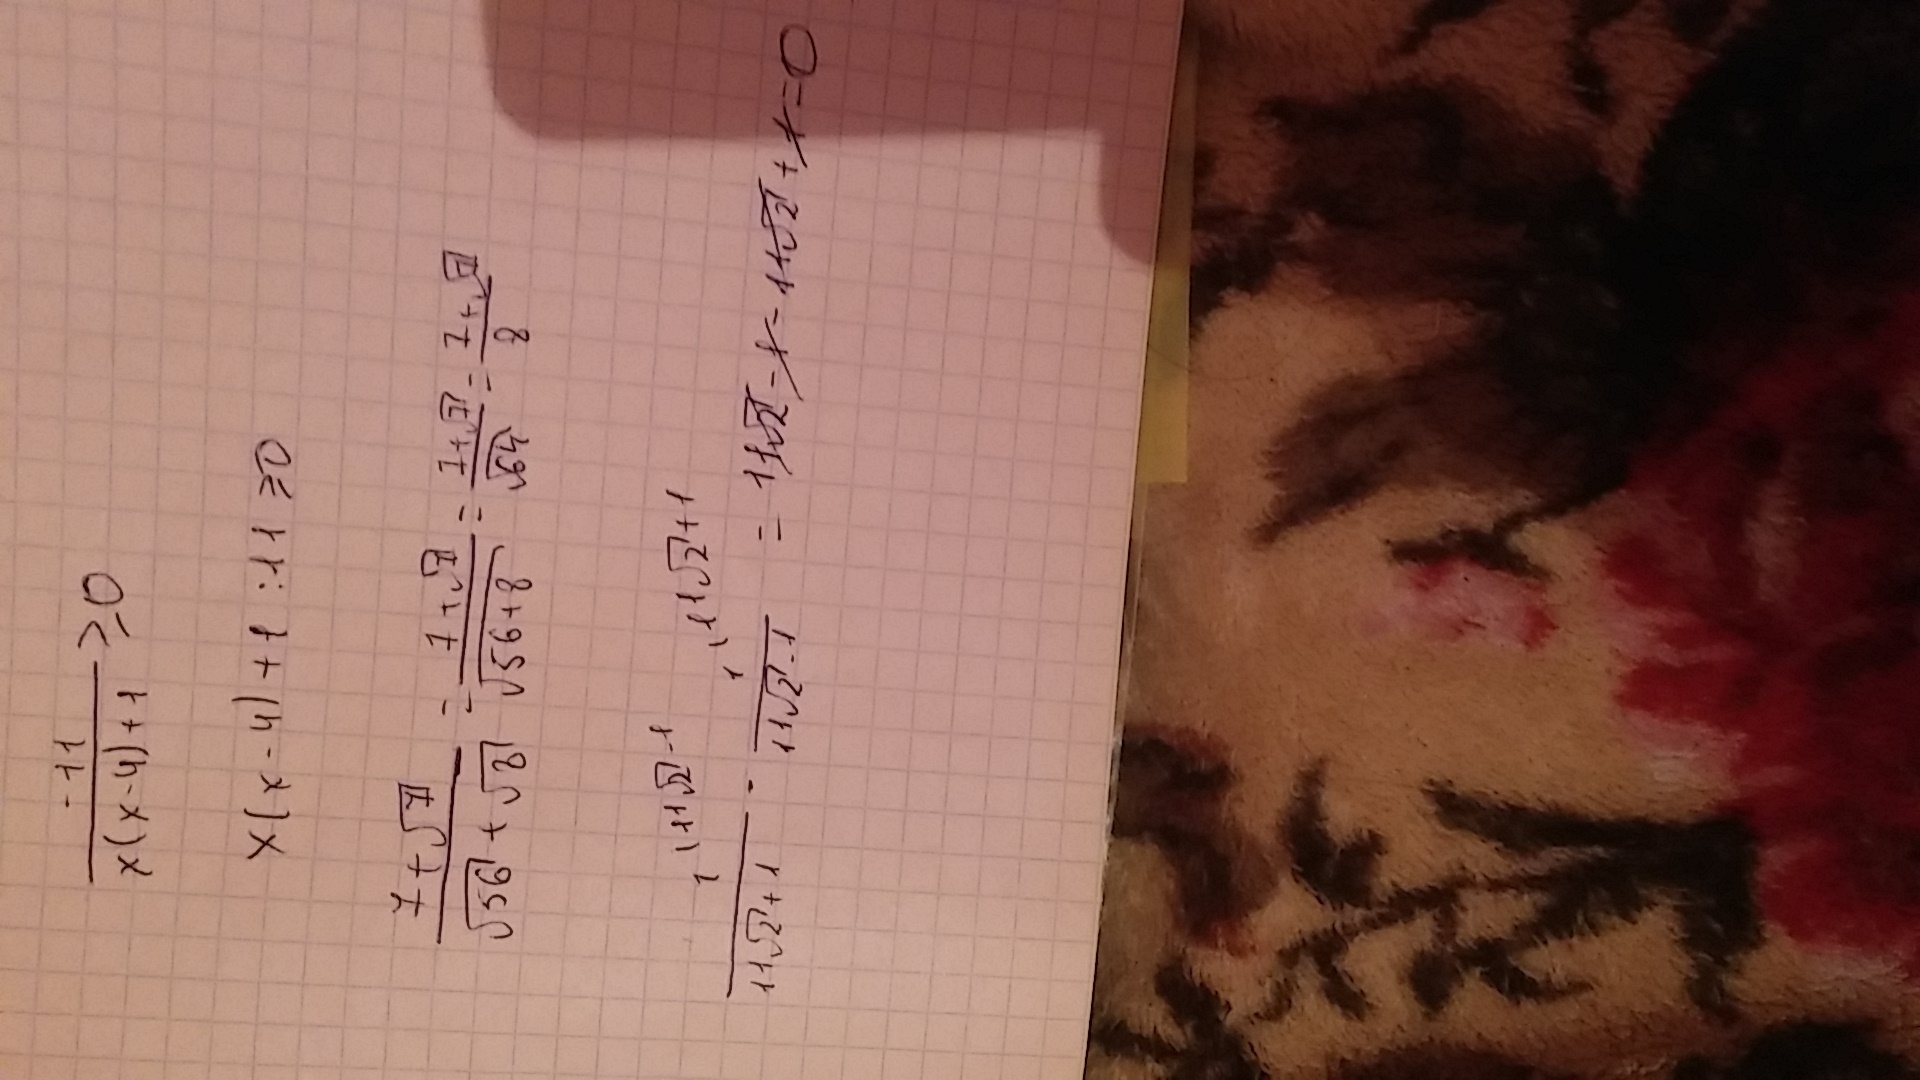 -11/(x(x-4)+1) ≥0
x(x-4)+1 :11 ≥0
(7+√7)/(√56+√8) = (7+√7)/√(56+8) = (7+√7)/√64 = (7+√7)/8
1 \11√2-1 1 \11√2+1
1/(11√2+1) - 1/(11√2-1) = 11√2-1-11√2+1=0